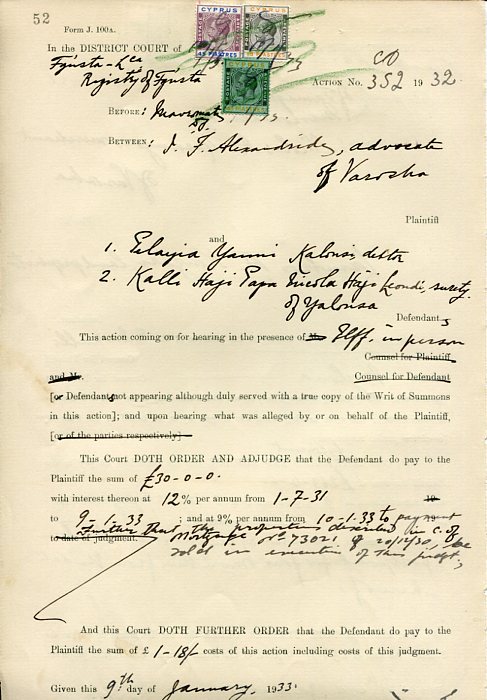 52
Form J. 100A.
CYPRUS CYPRUS
In the DISTRICT COURT of
Registry of
ACTION No. 352 1932
BEFORE:
BETWEEN: J. F. Alexandrides, advocate
of Varosha
Plaintiff
and
1. Yanni debtor
2. Kalli Haji Papa Nicola Haji surety.
of Yalousa
Defendants
This action coming on for hearing in the presence of Mr. Plff. in person
Counsel for Plaintiff
and Mr. Counsel for Defendant
[or Defendants not appearing although duly served with a true copy of the Writ of Summons
in this action]; and upon hearing what was alleged by or on behalf of the Plaintiff,
[or of the parties respectively]
This Court DOTH ORDER AND ADJUDGE that the Defendant do pay to
the Plaintiff the sum of £30-0-0.
with interest thereon at 12% per annum from 1-7-31 19
to 9-1-33 ; and at 9% per annum from 10-1-33 to payment
to date of judgment. Further that the properties described in C. of
Mortgage No 73021 of 20/12/30, be
sold in execution of this judgt;
And this Court DOTH FURTHER ORDER that the Defendant do pay to the
Plaintiff the sum of £ 1-18/- costs of this action including costs of this judgment.
Given this 9th day of January, 1933.